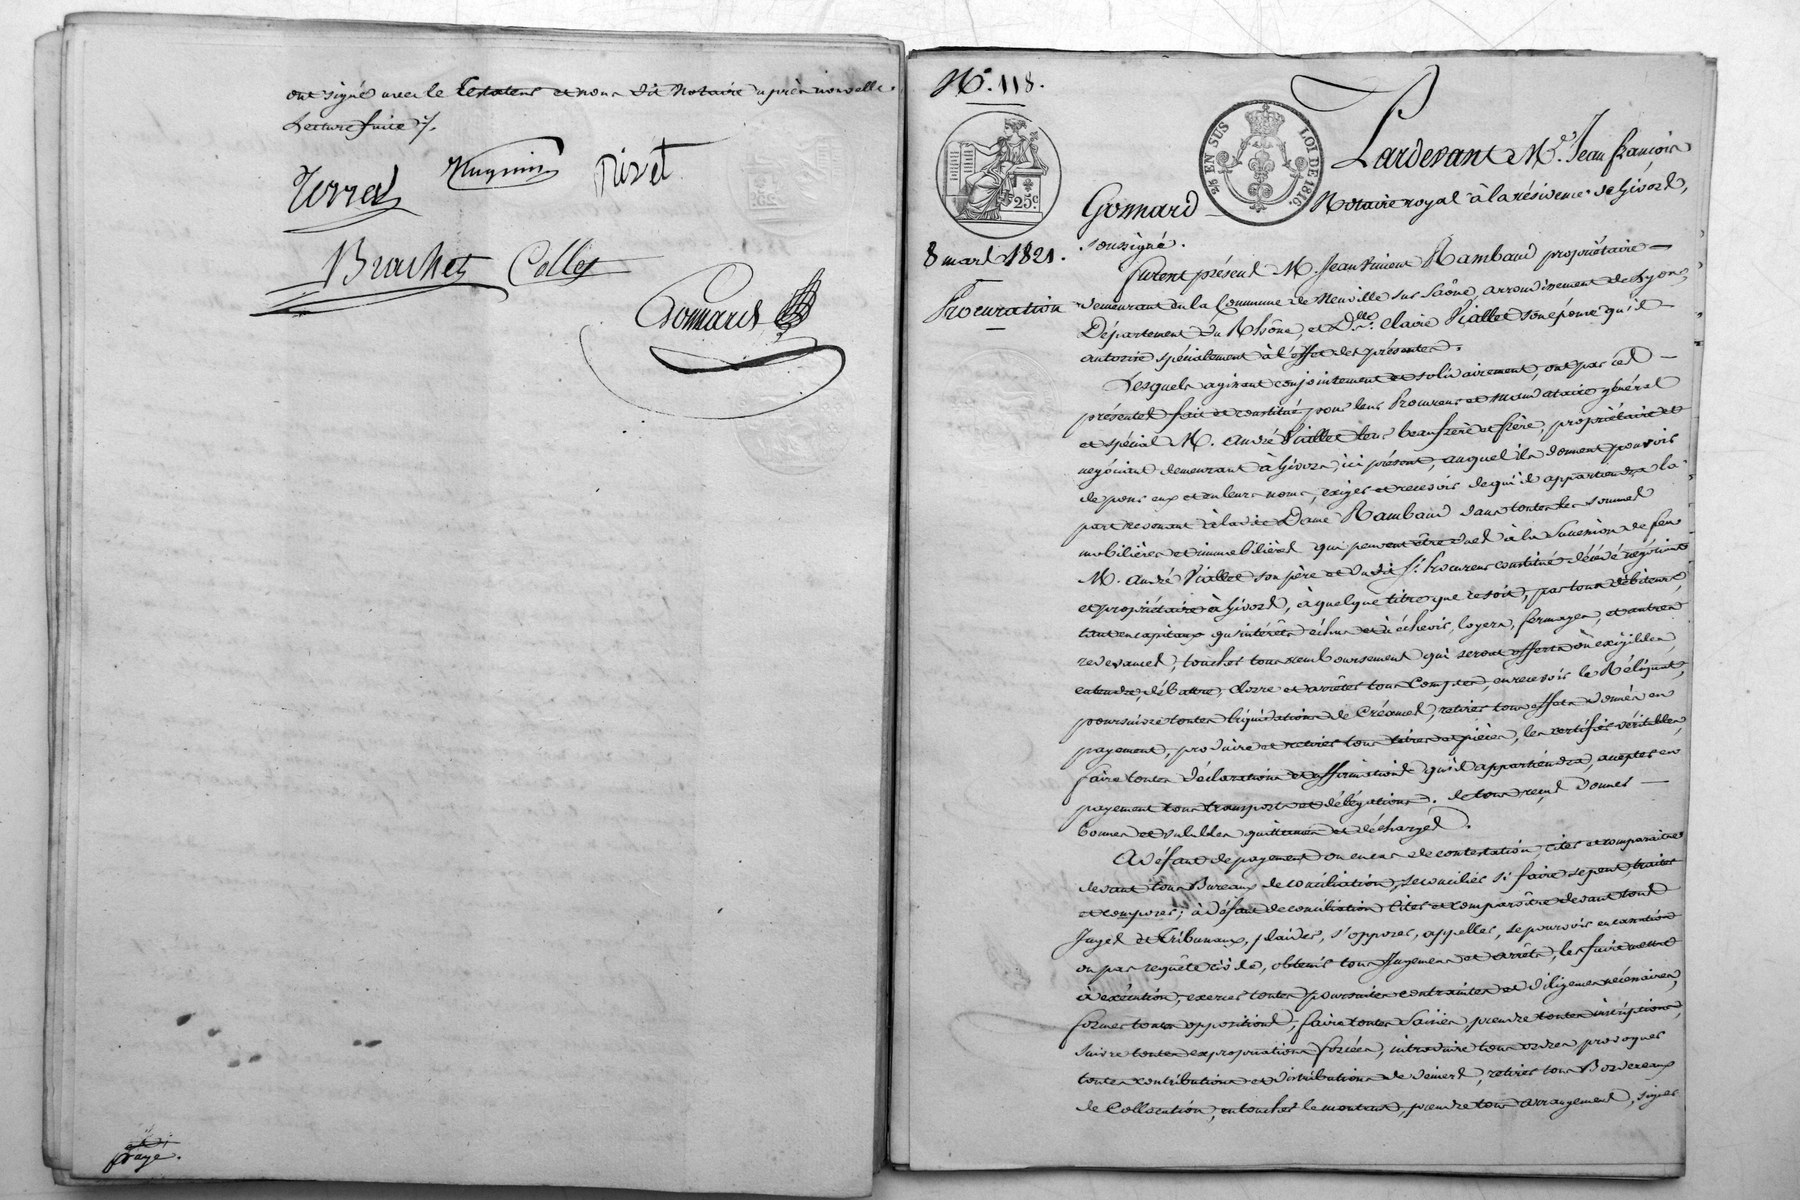 ont signé avec le Testateur et nous dit Notaire après nouvelle
Lecture faite ./.
Terret Rivet
Brachet Collet
Gonnard
Paye.
N.° 118.
25c
2/10 EN SUS LOI DE 1816.
Pardevant M.e Jean françois
Gonnard Notaire royal à la résidence de Givors,
soussigné.
8 mars 1821.
Furent présens M. Jean Vincent Rambaud propriétaire
Procuration
demeurant en la Commune de Neuville sur Saône, arrondissement de Lyon,
Département du Rhône, et D.lle Claire Viallet son épouse qu'il
autorise spécialement à l'effet des présentes.
Lesquels agissant conjointement et solidairement, ont par ces
présentes fait et constitué pour leur Procureur et mandataire général
et spécial M. André Viallet leur beaufrère et frère, propriétaire et
négociant demeurant à Givors, ici présent, auquel ils donnent pouvoir
de pour eux et en leurs noms, exiger et recevoir de qui il appartiendra la
part revenant à ladite Dame Rambaud dans toutes les sommes
mobilières et immobilières qui peuvent être dues à la Succession de feu
M. André Viallet son père et dudit S.r Procureur constitué décédé négociant
et propriétaire à Givors, à quelque titre que ce soit, par tous débiteurs,
tant en capitaux qu'intérêts échus et à échoir, loyers, fermages, et autres
redevances, toucher tous remboursement qui seront offerts ou exigibles,
entendre, débattre, clorre et arrêter tous Comptes, en recevoir le Réliquat,
poursuivre toutes liquidations de Créances, retirer tous effets donnés en
payement, produire et retirer tous titres et pièces, les certifier véritables,
faire toutes déclarations et affirmations qu'il appartiendra, accepter en
payement tous transports et délégations. de tous reçus donner
bonnes et valables quittances et décharges.
A défaut de payement ou en cas de contestation, citer et comparaitre
devant tous Bureaux de conciliation, se concilier si faire se peut, traiter
et composer; à défaut de conciliation citer et comparoître devant tous
Juges et Tribunaux, plaider, s'opposer, appeller, se pourvoir en cassation
ou par requête civile, obtenir tous Jugemens et arrêts, les faire mettre
à exécution, exercer toutes poursuites contraintes et diligences nécessaires,
former toutes oppositions, faire toutes Saisies, prendre toutes inscriptions,
suivre toutes expropriations forcées, introduire tous ordres provoquer
toutes contributions et distributions de deniers, retirer tous Bordereaux
de Collocation, en toucher le montant, prendre tous arrangemens, signer